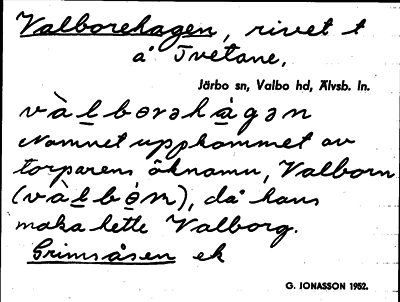 Valborehagen, rivet t
å Tvetane.
Järbo sn, Valbo hd, Älvsb. ln.
và l bɵrəhàgən
Namnet uppkommet av
torparens öknamn, Valborn
(và l b n), då hans
maka hette Valborg.
Grimsåsen ek
G. JONASSON 1952.